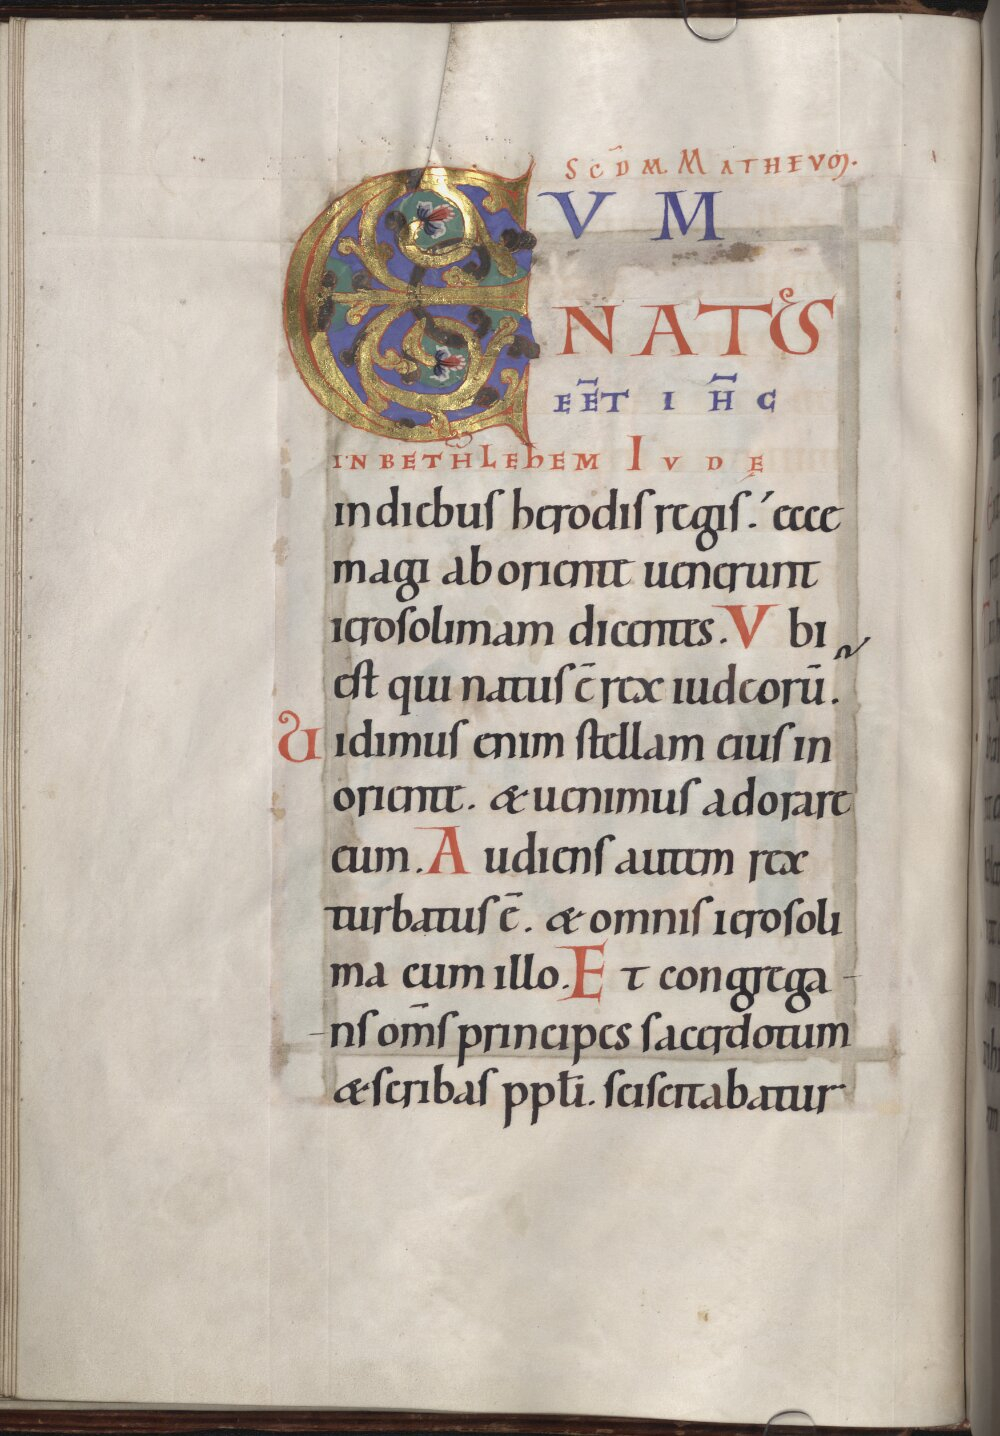 SCD̄M. MATHEVM.
CVM
NATUS
EĒT IH̄C
IN BETHLEHEM IVDE
in diebus herodis regis. ecce
magi ab oriente uenerunt
ierosolimam dicentes. Vbi
est qui natus ē rex iudeorū.
Uidimus enim stellam eius in
oriente. & uenimus adorare
eum. Audiens autem rex
turbatus ē. & omnis ierosoli
ma cum illo. Et congrega
ns om̄s principes sacerdotum
& scribas ppłi. sciscitabatur